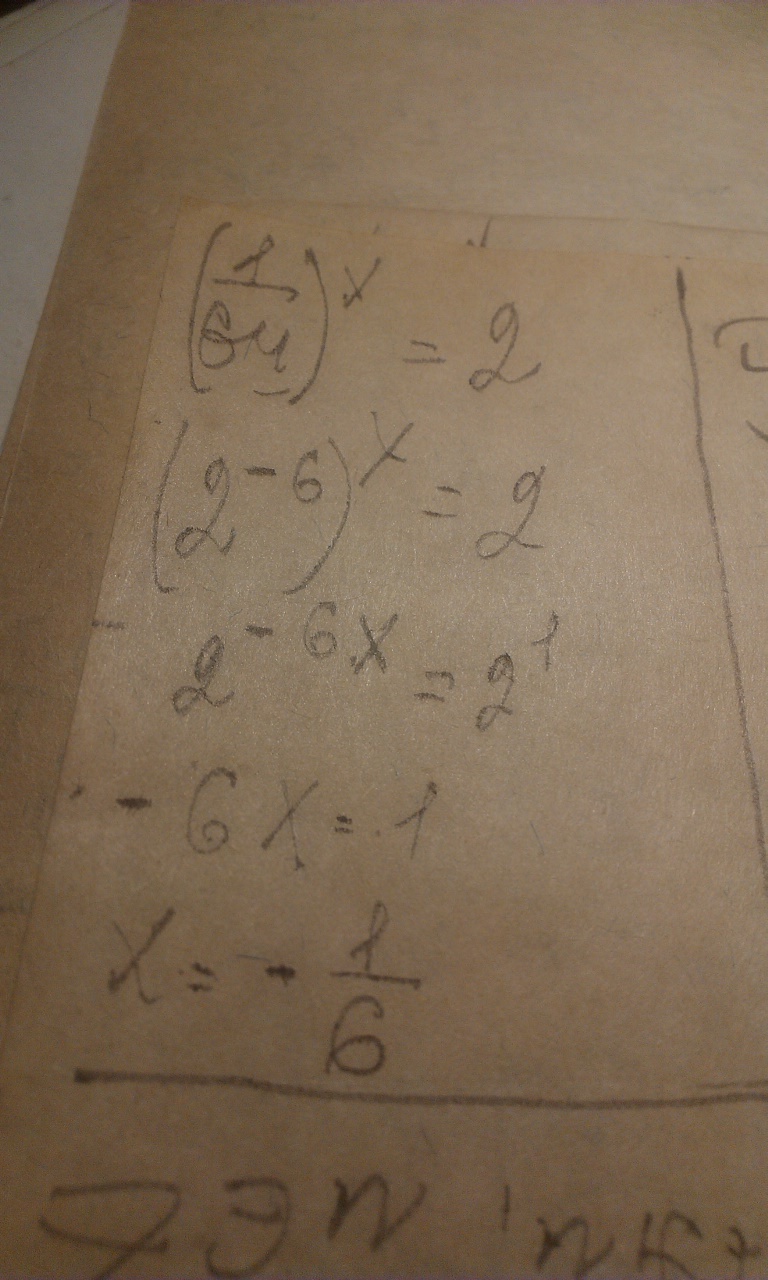 (1/64)^x = 2
(2^-6)^x = 2
2^-6x = 2^1
- 6x = 1
x = - 1/6